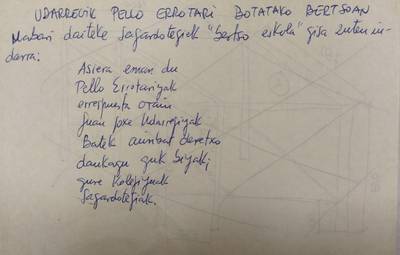 UDARREGIK PELLO ERROTARI BOTATAKO BERTSOAN
Nabari daiteke Sagardotegiek "bertso eskola" gisa zuten in-
darra:
Asiera eman du
Pello Errotariyak
errespuesta orain
Juan Jose Udarregiyak
Batek ainbat deretxo
daukagu guk biyak;
gure Kolejiyuak
Sagardotegiak.